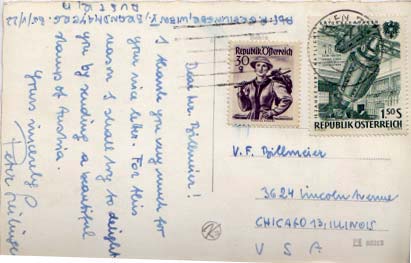 Dear Mr. Billmeier!
I thank you very much for
your nice letter. For this
reason I shall try to delight
you by sending a beautiful
stamps of Austria.
Yours sincerely
Peter
Republik Österreich
30
g
1.50 S
REPUBLIK ÖSTERREICH
V. F. Billmeier
3624 Lincoln Avenue
CHICAGO 13, ILLINOIS
V S A